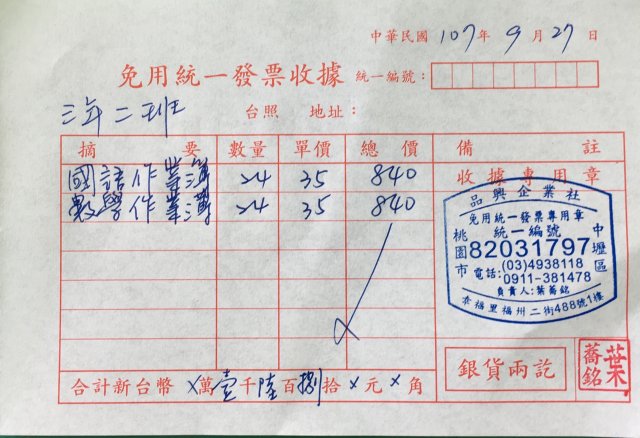 中華民國 107 年 9 月 27 日
免用統一發票收據 統一編號：
三年二班 台照 地址：
摘要 數量 單價 總價 備註
國語作業簿 24 35 840 收據專用章
數學作業簿 24 35 840
品興企業社
免用統一發票專用章
統一編號
桃園市 82031797 中壢區
電話:(03)4938118
0911-381478
負責人:葉蕎銘
幸福里福州二街488號1樓
銀貨兩訖
葉蕎銘
合計新台幣 X 萬 壹 千 陸 百 捌 拾 X 元 X 角